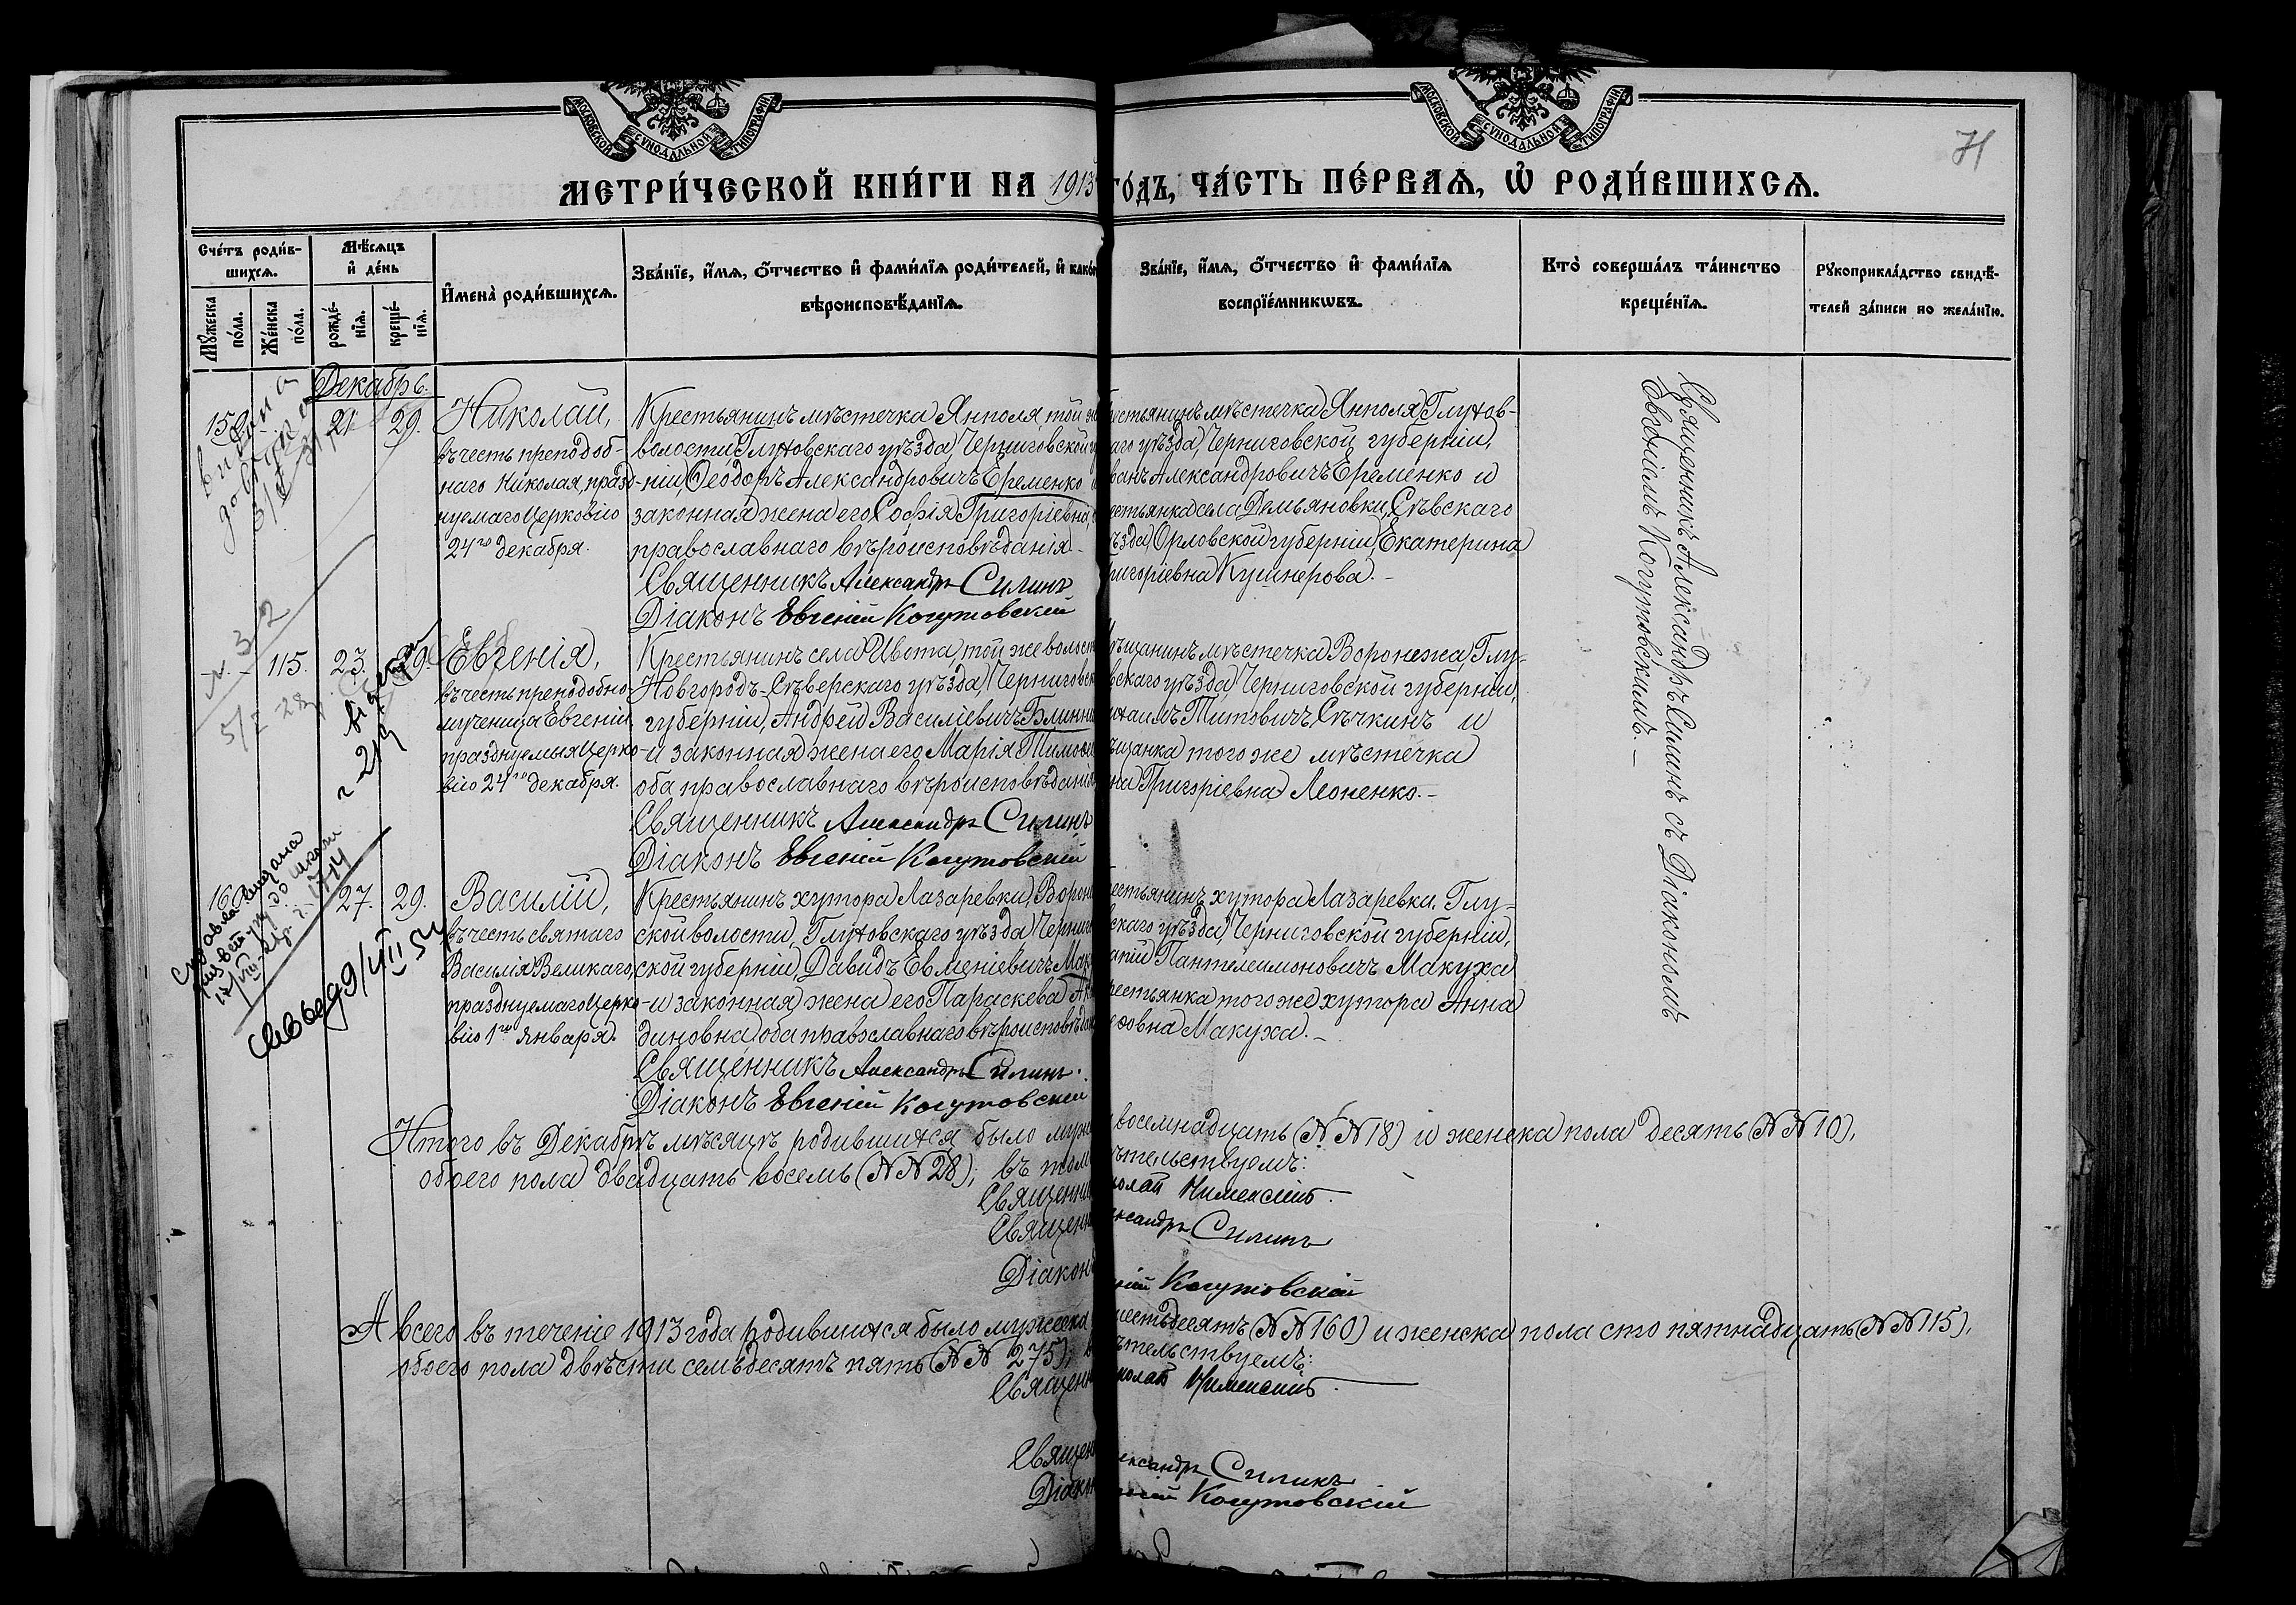 МОСКОВСКОЙ СѴНОДАЛЬНОЙ ТИПОГРАФІИ
МОСКОВСКОЙ СѴНОДАЛЬНОЙ ТИПОГРАФІИ
71
МЕТРИ́ЧЕСКОЙ КНИ́ГИ НА 1913 ГО́ДЪ, ЧА́СТЬ ПЕ́РВАѦ, Ѡ РОДИ́ВШИХСѦ.
Сче́тъ роди́в-
шихсѧ.
Мꙋ́жеска по́ла.
Же́нска по́ла.
Мѣ́сѧцъ
и҆ де́нь
рожде́-
нїѧ.
креще́-
нїѧ.
И҆мена̀ роди́вшихсѧ.
Зва́нїе, и҆́мѧ, ѻ҆́тчество и҆ фами́лїѧ роди́телей, и҆ како́
вѣроисповѣ́данїѧ.
Зва́нїе, и҆́мѧ, ѻ҆́тчество и҆ фами́лїѧ
воспрїе́мникѡвъ.
Кто̀ соверша́лъ та́инство
креще́нїѧ.
Рꙋкоприкла́дство свидѣ́-
телей за́писи по жела́нїю.
Декабрь.
159. 21. 29.
Николай,
въ честь преподоб-
наго Николая, празд-
нуемаго Церковію
24го декабря.
Крестьянинъ мѣстечка Янполя, той же
волости, Глуховскаго уѣзда, Черниговской
ніи, Ѳеодоръ Александровичъ Еременко
законная жена его Софія Григоріевна,
православнаго вѣроисповѣданія.
Священникъ Александръ Силинъ
Діаконъ Евгеній Когутовскій
естьянинъ мѣстечка Янполя, Глухов-
аго уѣзда, Черниговской губерніи,
ванъ Александровичъ Еременко и
естьянка села Демьяновки, Сѣвскаго
ѣзда, Орловской губерніи, Екатерина
ригоріевна Кушнерова.–
Священникъ Александръ Силинъ съ Діакономъ
Евгеніемъ Когутовскимъ.–
115. 23. 29.
Евгенія,
въ честь преподобно-
мученицы Евгеніи,
празднуемыя Церко-
вію 24го декабря.
Крестьянинъ села Ивота, той же волост
Новгородъ-Сѣверскаго уѣзда, Черниговск
губерніи, Андрей Василіевичъ Блинни
и законная жена его Марія Тимоѳе
оба православнаго вѣроисповѣданія
Священникъ Александръ Силинъ
Діаконъ Евгеній Когутовскій
ѣщанинъ мѣстечка Воронежа, Глу-
вскаго уѣзда, Черниговской губерніи,
ихаилъ Титовичъ Сѣчкинъ и
ѣщанка того же мѣстечка
на Григоріевна Леоненко.–
160. 27. 29.
Василій,
въ честь святаго
Василія Великаго,
празднуемаго Церко-
вію 1го января.
Крестьянинъ хутора Лазаревки, Ворон
ской волости, Глуховскаго уѣзда, Черниго
ской губерніи, Давидъ Евменіевичъ Мак
и законная жена его Параскева Ак
диновна, оба православнаго вѣроисповѣдан
Священникъ Александръ Силинъ.
Діаконъ Евгеній Когутовскій
естьянинъ хутора Лазаревки, Глу-
скаго уѣзда, Черниговской губерніи,
Пантелеимоновичъ Макуха
рестьянка того же хутора Анна
Макуха.–
Итого въ Декабрѣ мѣсяцѣ родившихся было муж восемнадцать (№№ 18) и женска пола десять (№№ 10),
обоего пола двадцать восемь (№№ 28); въ том ѣтельствуемъ:
Священни колай
Священн ександръ Силинъ
Діакон ній Когутовскій
А всего въ теченіе 1913 года родившихся было мужеска шестьдесятъ (№№ 160) и женска пола сто пятнадцать (№№ 115),
обоего пола двѣсти семьдесятъ пять (№№ 275); ѣтельствуемъ:
Священ колай
Священ ександръ Силинъ
Діакон Когутовскій